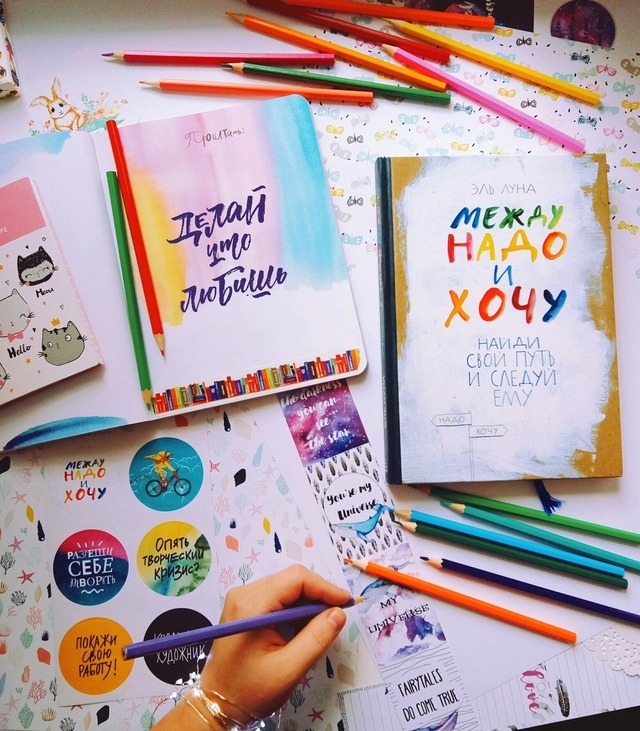 Прочитать:
Делай
что
любишь
ЭЛЬ ЛУНА
МЕЖДУ
НАДО
И
ХОЧУ
НАЙДИ
СВОЙ ПУТЬ
И СЛЕДУЙ
ЕМУ
НАДО
ХОЧУ
Meow
Hello
МЕЖДУ
НАДО
И
ХОЧУ
РАЗРЕШИ
СЕБЕ
ТВОРИТЬ
Опять
творческий
кризис?
ПОКАЖИ
СВОЮ
РАБОТУ!
ХУДОЖНИК
the darkness
you can
see
the star
You're my
Universe
MY
UNIVERSE
FAIRYTALES
DO COME TRUE
Love